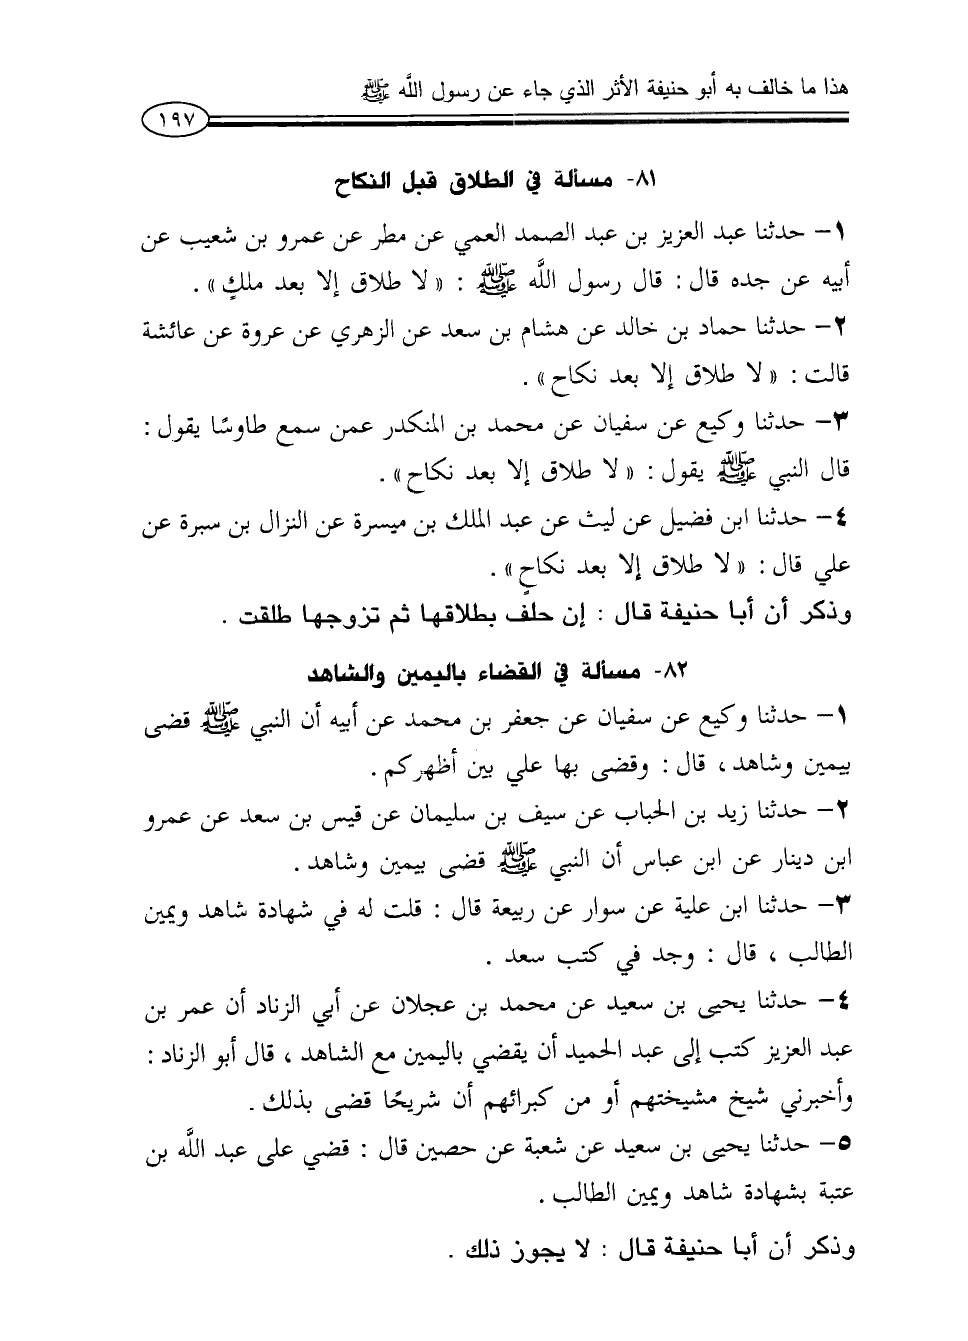 هذا ما خالف به أبو حنيفة الأثر الذي جاء عن رسول اللَّه ﷺ
١٩٧
٨١- مسألة في الطلاق قبل النكاح
١- حدثنا عبد العزيز بن عبد الصمد العمي عن مطر عن عمرو بن شعيب عن
أبيه عن جده قال : قال رسول اللَّه ﷺ : « لا طلاق إلا بعد ملكٍ» .
٢- حدثنا حماد بن خالد عن هشام بن سعد عن الزهري عن عروة عن عائشة
قالت : « لا طلاق إلا بعد نكاح» .
٣- حدثنا وكيع عن سفيان عن محمد بن المنكدر عمن سمع طاوسًا يقول :
قال النبي ﷺ يقول : « لا طلاق إلا بعد نكاح» .
٤- حدثنا ابن فضيل عن ليث عن عبد الملك بن ميسرة عن النزال بن سبرة عن
علي قال : « لا طلاق إلا بعد نكاحٍ» .
وذكر أن أبا حنيفة قال : إن حلف بطلاقها ثم تزوجها طلقت .
٨٢- مسألة في القضاء باليمين والشاهد
١- حدثنا وكيع عن سفيان عن جعفر بن محمد عن أبيه أن النبي ﷺ قضى
بيمين وشاهد ، قال : وقضى بها علي بين أظهركم .
٢- حدثنا زيد بن الحباب عن سيف بن سليمان عن قيس بن سعد عن عمرو
ابن دينار عن ابن عباس أن النبي ﷺ قضى بيمين وشاهد .
٣- حدثنا ابن علية عن سوار عن ربيعة قال : قلت له في شهادة شاهد ويمين
الطالب ، قال : وجد في كتب سعد .
٤- حدثنا يحيى بن سعيد عن محمد بن عجلان عن أبي الزناد أن عمر بن
عبد العزيز كتب إلى عبد الحميد أن يقضي باليمين مع الشاهد ، قال أبو الزناد :
وأخبرني شيخ مشيختهم أو من كبرائهم أن شريحًا قضى بذلك .
٥- حدثنا يحيى بن سعيد عن شعبة عن حصين قال : قضي على عبد اللَّه بن
عتبة بشهادة شاهد ويمين الطالب .
وذكر أن أبا حنيفة قال : لا يجوز ذلك .